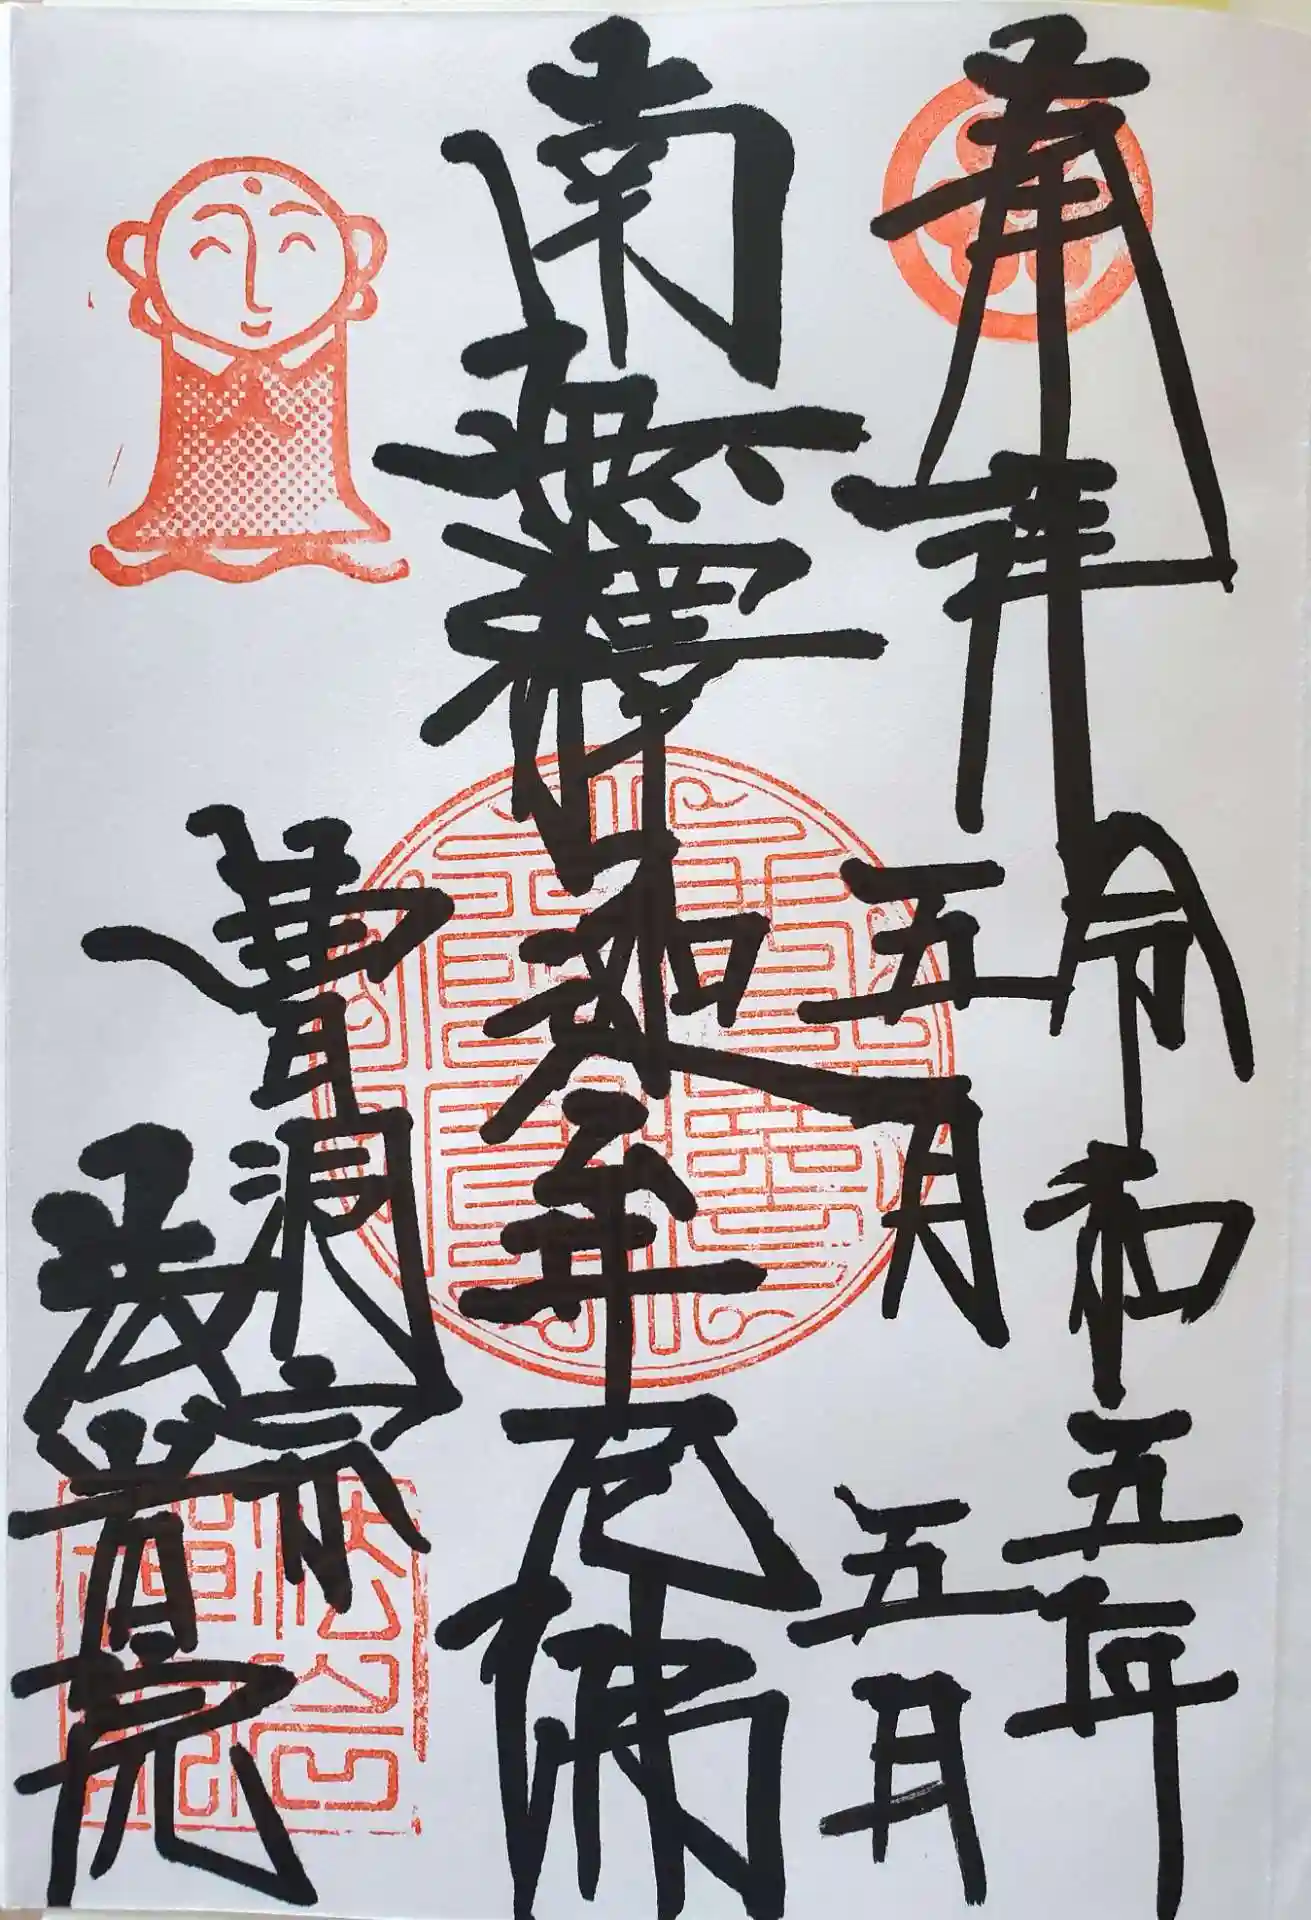 奉拝
令和五年
五月五日
南無釋迦牟尼佛
曹洞宗
院